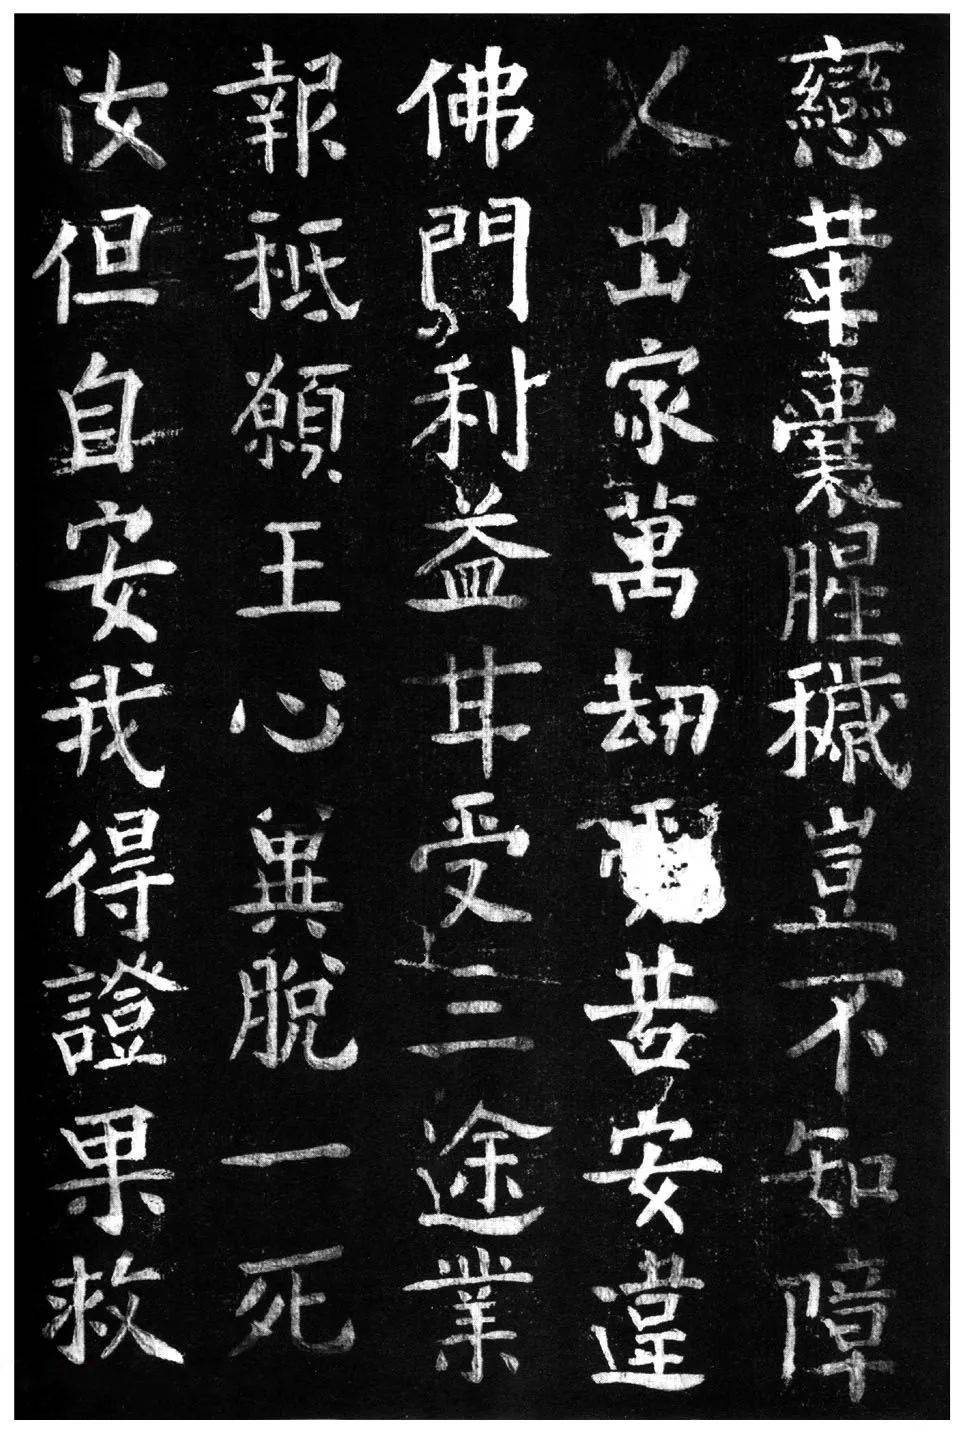 戀革囊腥穢豈不知障
人出家萬劫受苦安違
佛門利益甘受三途業
報秖願王心異脫一死
汝但自安我得證果救